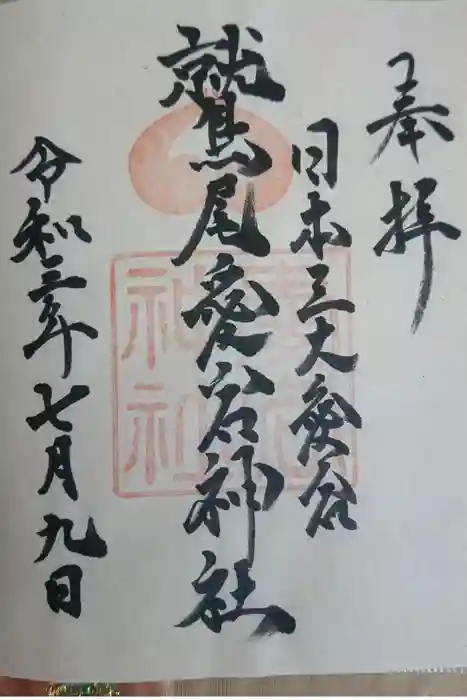 奉拝
日本三大愛宕
鷲尾愛宕神社
令和三年七月九日
神社